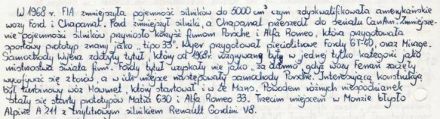 W 1968 r. FIA zmniejszyła pojemność silników do 5000 cm³ czym zdyskwalifikowała amerykańskie
wozy Ford i Chaparral. Ford zmniejszył silniki, a Chaparral przeszedł do serialu CanAm. Zmniejsze-
nie pojemności silników przyniosło korzyść firmom Porsche i Alfa Romeo, która przygotowała
sportowy prototyp znany jako „tipo 33". Wyer przygotował pięciolitrowe Fordy GT-40, oraz Mirage.
Samochody Wyera zdobyły tytuł, który od 1968r. wzgrywany był w jednej tylko kategorii jako
mistrzostwa świata firm. Fordy tytuł uzyskały nie jako, za darmo gdyż wozy Ferrari zaczęły
wycofywać się z toru, a w ich miejsce następowały samochody Porsche. Interesującą konstrukcją
był turbinowy wóz Howmet, który startował i w Le Mans. Powodem różnych niespodzianek
stały się starty prototypów Matra 630 i Alfa Romeo 33. Trzecim miejscem w Monzie błysło
Alpine A 211 z trzylitrowym silnikiem Renault Gordini V8.